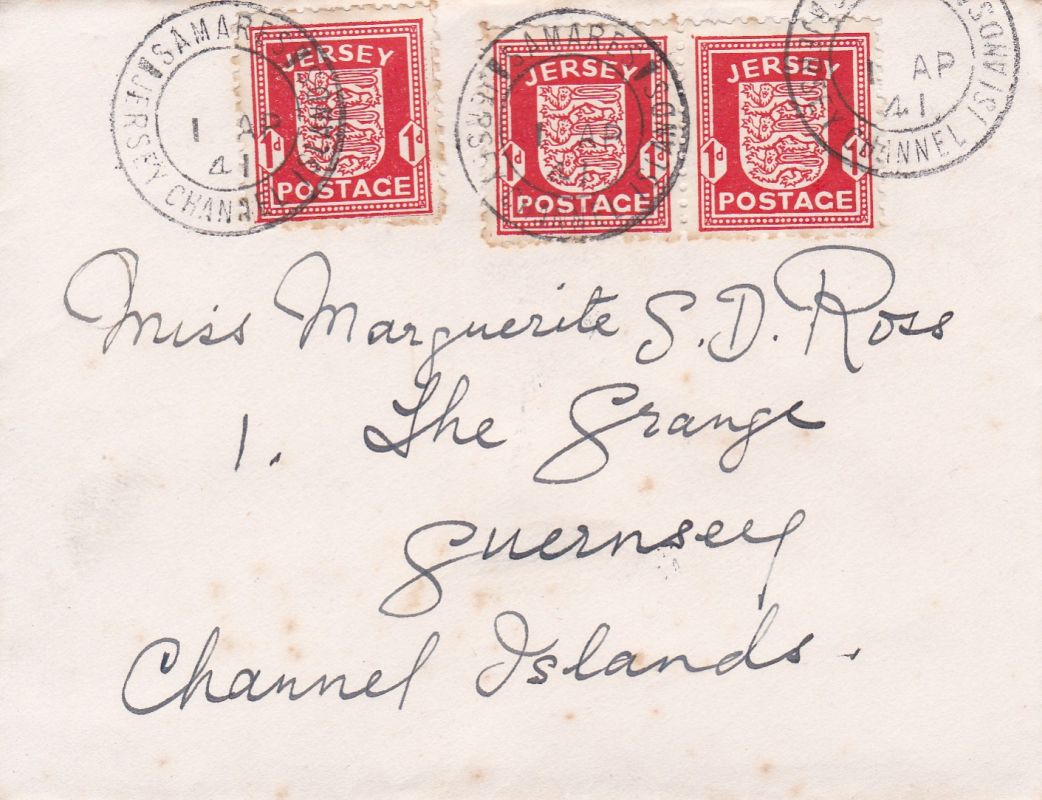 SAMARES JERSEY CHANNEL ISLANDS
1 AP
41
JERSEY
1d 1d
POSTAGE
SAMARES JERSEY CHANNEL ISLANDS
1 AP
41
JERSEY
1d 1d
POSTAGE
JERSEY
1d 1d
POSTAGE
JERSEY CHANNEL ISLANDS
1 AP
41
Miss Marguerite S. D. Ross
1. The Grange
Guernsey
Channel Islands.